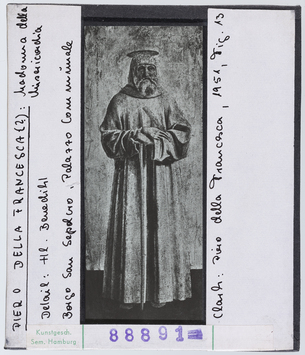 PIERO DELLA FRANCESCA(?): Madonna della
Misericordia
Detail: Hl. Benedikt
Borgo San Sepolcro, Palazzo Communale
Clark: Piero della Francesca, 1951, Fig. 13
Kunstgesch.
Sem. Hamburg